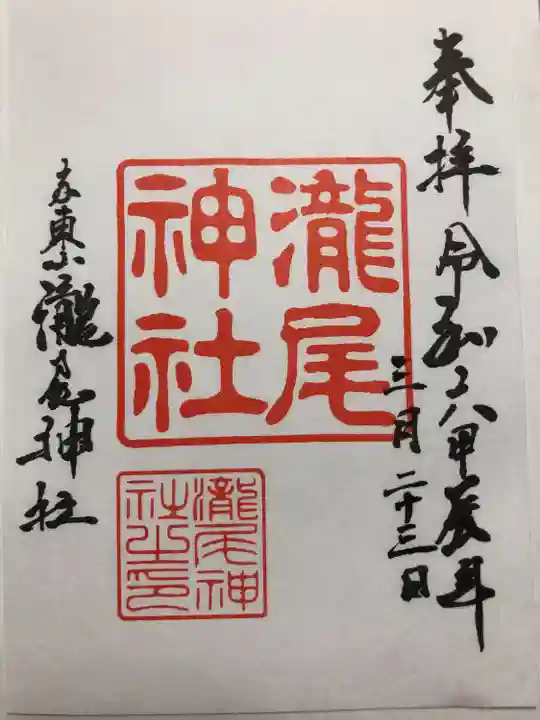 奉拝 令和六甲辰年
三月二十三日
瀧尾
神社
瀧尾神
社之印
東山瀧尾神社